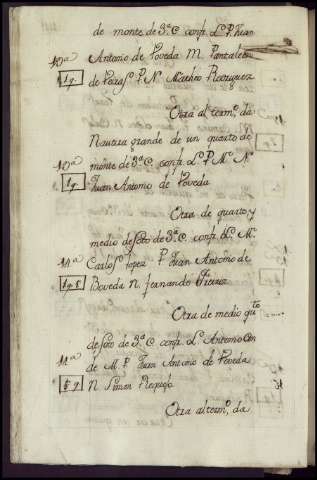 de monte de 3ª C confr. L. P. Juan
10ª Antonio de Poveda M. Pantaleon
1q. de Peras. P. N. Matheo Rodriguez
Otra al term.º da
Nautiza grande de un quarto de
10ª monte de 3ª C confr. L. P. M. N.
1q. Juan Antonio de Poveda
Otra de quarto y
medio de soto de 3ª C. confr. L. M.
11ª Carlos Lopez P. Juan Antonio de
1q. Boveda N. fernando
Otra de medio q.to
de soto de 3ª C confr. L. Antonio Con
11ª de M. P. Juan Antonio de Poveda
N. Simon
Otra al term.º da